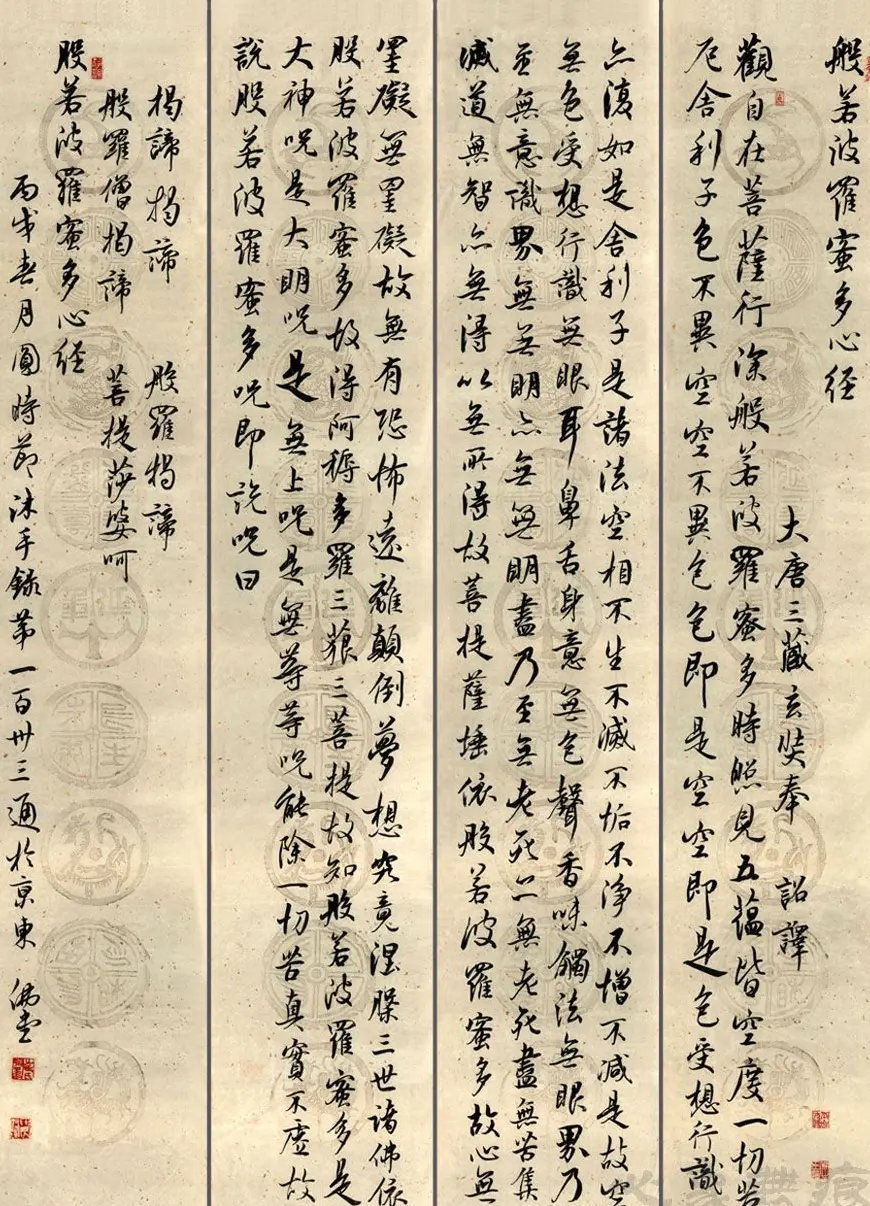 般若波羅蜜多心経
大唐三藏玄奘奉 詔譯
觀自在菩薩行深般若波羅蜜多時照見五蘊皆空度一切苦
厄舍利子色不異空空不異色色即是空空即是色受想行識
亦復如是舍利子是諸法空相不生不滅不垢不淨不增不減是故空
無色受想行識無眼耳鼻舌身意無色聲香味觸法無眼界乃
至無意識界無無明亦無無明盡乃至無老死亦無老死盡無苦集
滅道無智亦無得以無所得故菩提薩埵依般若波羅蜜多故心無
罣礙無罣礙故無有恐怖遠離顛倒夢想究竟涅槃三世諸佛依
般若波羅蜜多故得阿耨多羅三藐三菩提故知般若波羅蜜多是
大神咒是大明咒是無上咒是無等等咒能除一切苦真實不虛故
說般若波羅蜜多咒即說咒曰
揭諦揭諦 般羅揭諦
般羅僧揭諦 菩提莎婆呵
般若波羅蜜多心経
丙戌春月圓時節沐手錄第一百卅三通於京東